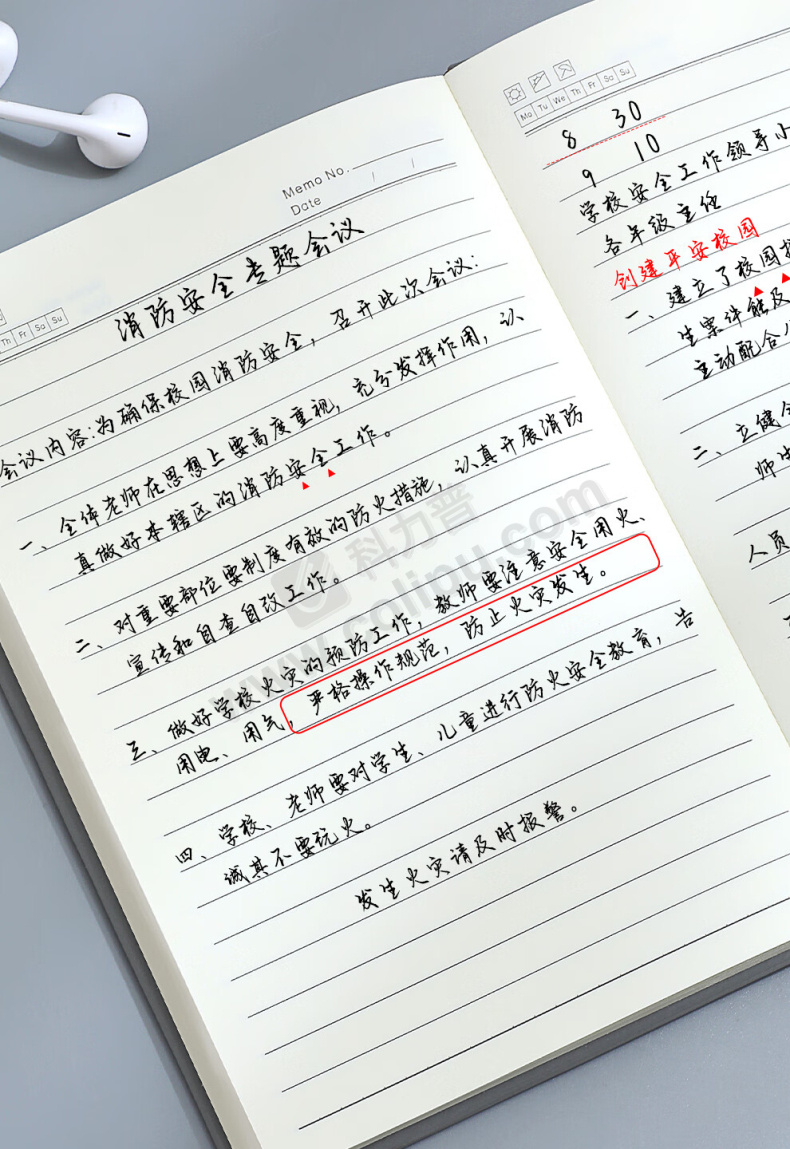 Memo No.
Date
Th Fr Sa Su
消防安全专题会议
会议内容:为确保校园消防安全，召开此次会议：
一、全体老师在思想上要高度重视，充分发挥作用，认
真做好本辖区的消防安全工作。
二、对重要部位要制度有效的防火措施，认真开展消防
宣传和自查自改工作。
三、做好学校火灾的预防工作，教师要注意安全用火、
用电、用气，严格操作规范，防止火灾发生。
四、学校、老师要对学生、儿童进行防火安全教育，告
诫其不要玩火。
发生火灾请及时报警。
科力普
www.colipu.com
Mo Tu We Th Fr Sa Su
8 30
9 10
学校安全工作领导小
各年级主任
创建平安校园
一、建立了校园
生案件能及
主动配合
二、立健全
师生
人员